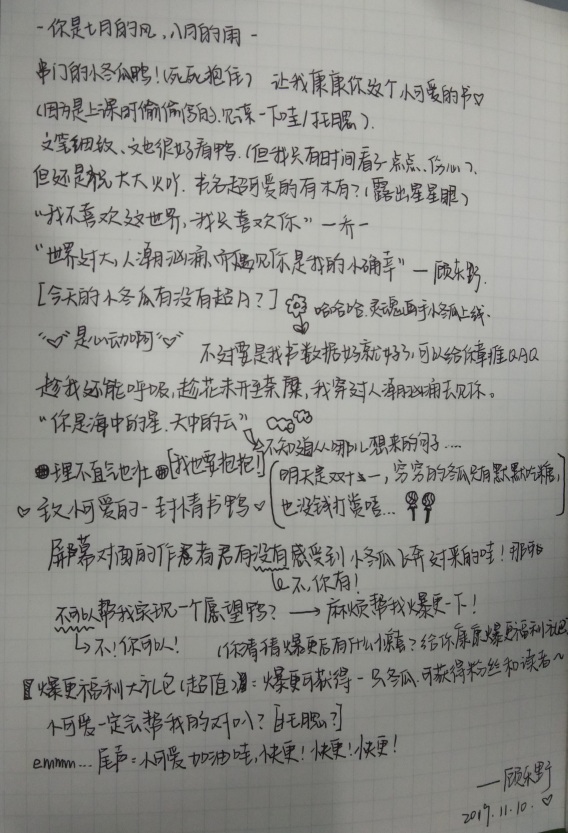 -你是七月的风，八月的雨-
串门的小冬瓜鸭！（死死抱住） 让我康康你这个小可爱的书♡
（因为是上课时偷偷写的，见谅一下哇/捂脸）.
文笔细致、文也很好看鸭.（但我只有时间看了一点点、伤心）.
但还是祝大大火吖. 书名超可爱的有木有？（露出星星眼）
“我不喜欢这世界，我只喜欢你” 一乔一
“世界过大，人潮汹涌，而遇见你是我的小确幸” —顾东野.
[今天的小冬瓜有没有超A？] 哈哈哈.灵魂画手小冬瓜上线.
“♡是心动啊♡” 不过要是我书数据好就好了，可以给你章推QAQ
趁我还能呼吸，趁花未开至荼蘼，我穿过人潮汹涌去见你。
“你是海中的星.天中的云”
不知道从哪儿想来的句子....
理不直气也壮 [我也要抱抱！]
（明天是双十一，穷穷的冬瓜只有默默吃糖，
也没钱打赏唔...
♡ 致小可爱的一封情书鸭 ♡
屏幕对面的作者君有没有感受到小冬瓜飞奔过来的哇！那可
不，你有！
不可以帮我实现一个愿望鸭？ → 麻烦帮我爆更一下！
不！你可以！ （你猜猜爆更后有什么惊喜？给你康康爆更福利礼包
爆更福利大礼包（超值）：爆更可获得一只冬瓜.可获得粉丝和读者~
小可爱一定会帮我的对叭？[捂脸？]
emmm... 尾声：小可爱加油哇，快更！快更！快更！
——顾东野
2019.11.10. ♡